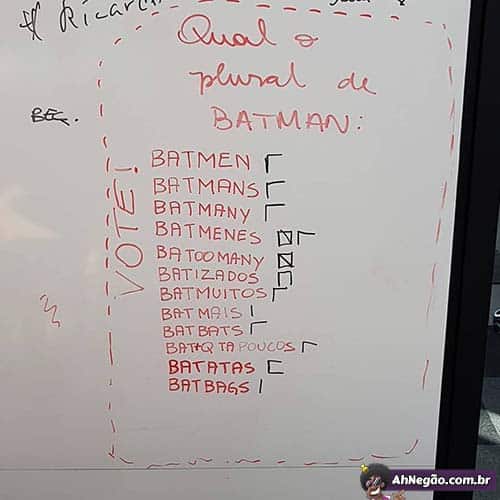 Ricar
Qual o
plural de
BATMAN:
VOTE!
BATMEN
BATMANS
BATMANY
BATMENES
BATOOMANY
BATIZADOS
BATMUITOS
BATMAIS
BATBATS
BATAQTAPOUCOS
BATATAS
BATBAGS
AhNegão.com.br